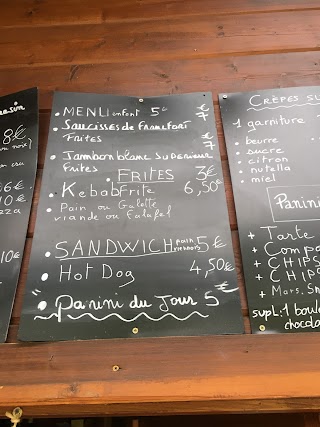 asin
8€
6€
10€
MENU enfant 5€
Saucisses de Francfort €
Frites 7
Jambon blanc supérieur €
Frites 7
FRITES 3€
Kebab Frite 6,50€
Pain ou Galette
viande ou Falafel
SANDWICH pain 5€
Hot Dog 4,50€
"Panini du Jour 5€
CRÊPES SU
1 garniture
beurre
sucre
citron
nutella
miel
Panini
+ Tarte
+ Compo
+ CHIPS
+ CHIPS
+ Mars, Sn
supL: 1 boul
chocola